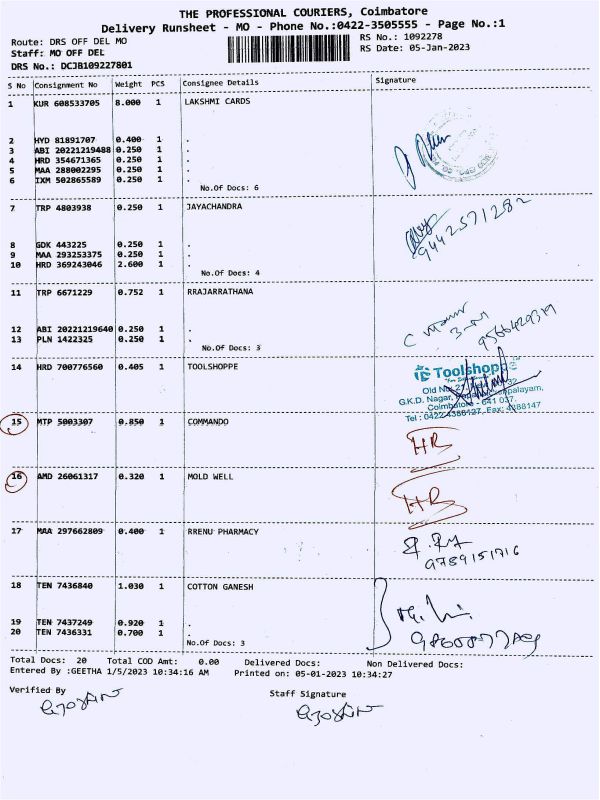 THE PROFESSIONAL COURIERS, Coimbatore
Delivery Runsheet - MO - Phone No.:0422-3505555 - Page No.:1
Route: DRS OFF DEL MO RS No.: 1092278
Staff: MO OFF DEL RS Date: 05-Jan-2023
DRS No.: DCJB109227801
S No Consignment No Weight PCS Consignee Details Signature
1 KUR 608533705 8.000 1 LAKSHMI CARDS
2 HYD 81891707 0.400 1 .
3 ABI 20221219488 0.250 1 .
4 HRD 354671365 0.250 1 .
5 MAA 288002295 0.250 1 .
6 IXM 502865589 0.250 1 .
No.Of Docs: 6
7 TRP 4803938 0.250 1 JAYACHANDRA
9442571282
8 GDK 443225 0.250 1 .
9 MAA 293253375 0.250 1 .
10 HRD 369243046 2.600 1 .
No.Of Docs: 4
11 TRP 6671229 0.752 1 RRAJARRATHANA
12 ABI 20221219640 0.250 1 .
13 PLN 1422325 0.250 1 .
No.Of Docs: 3
14 HRD 700776560 0.405 1 TOOLSHOPPE
Toolshoppe
Old No.
G.K.D. Nagar,
Coimbatore - 641 037.
Tel : 0422-4388127, Fax: 4388147
15 MTP 5003307 0.850 1 COMMANDO
HB
16 AMD 26061317 0.320 1 MOLD WELL
HB
17 MAA 297662809 0.400 1 RRENU PHARMACY
9789151716
18 TEN 7436840 1.030 1 COTTON GANESH
19 TEN 7437249 0.920 1 .
20 TEN 7436331 0.700 1 .
No.Of Docs: 3
Total Docs: 20 Total COD Amt: 0.00 Delivered Docs: Non Delivered Docs:
Entered By :GEETHA 1/5/2023 10:34:16 AM Printed on: 05-01-2023 10:34:27
Verified By Staff Signature